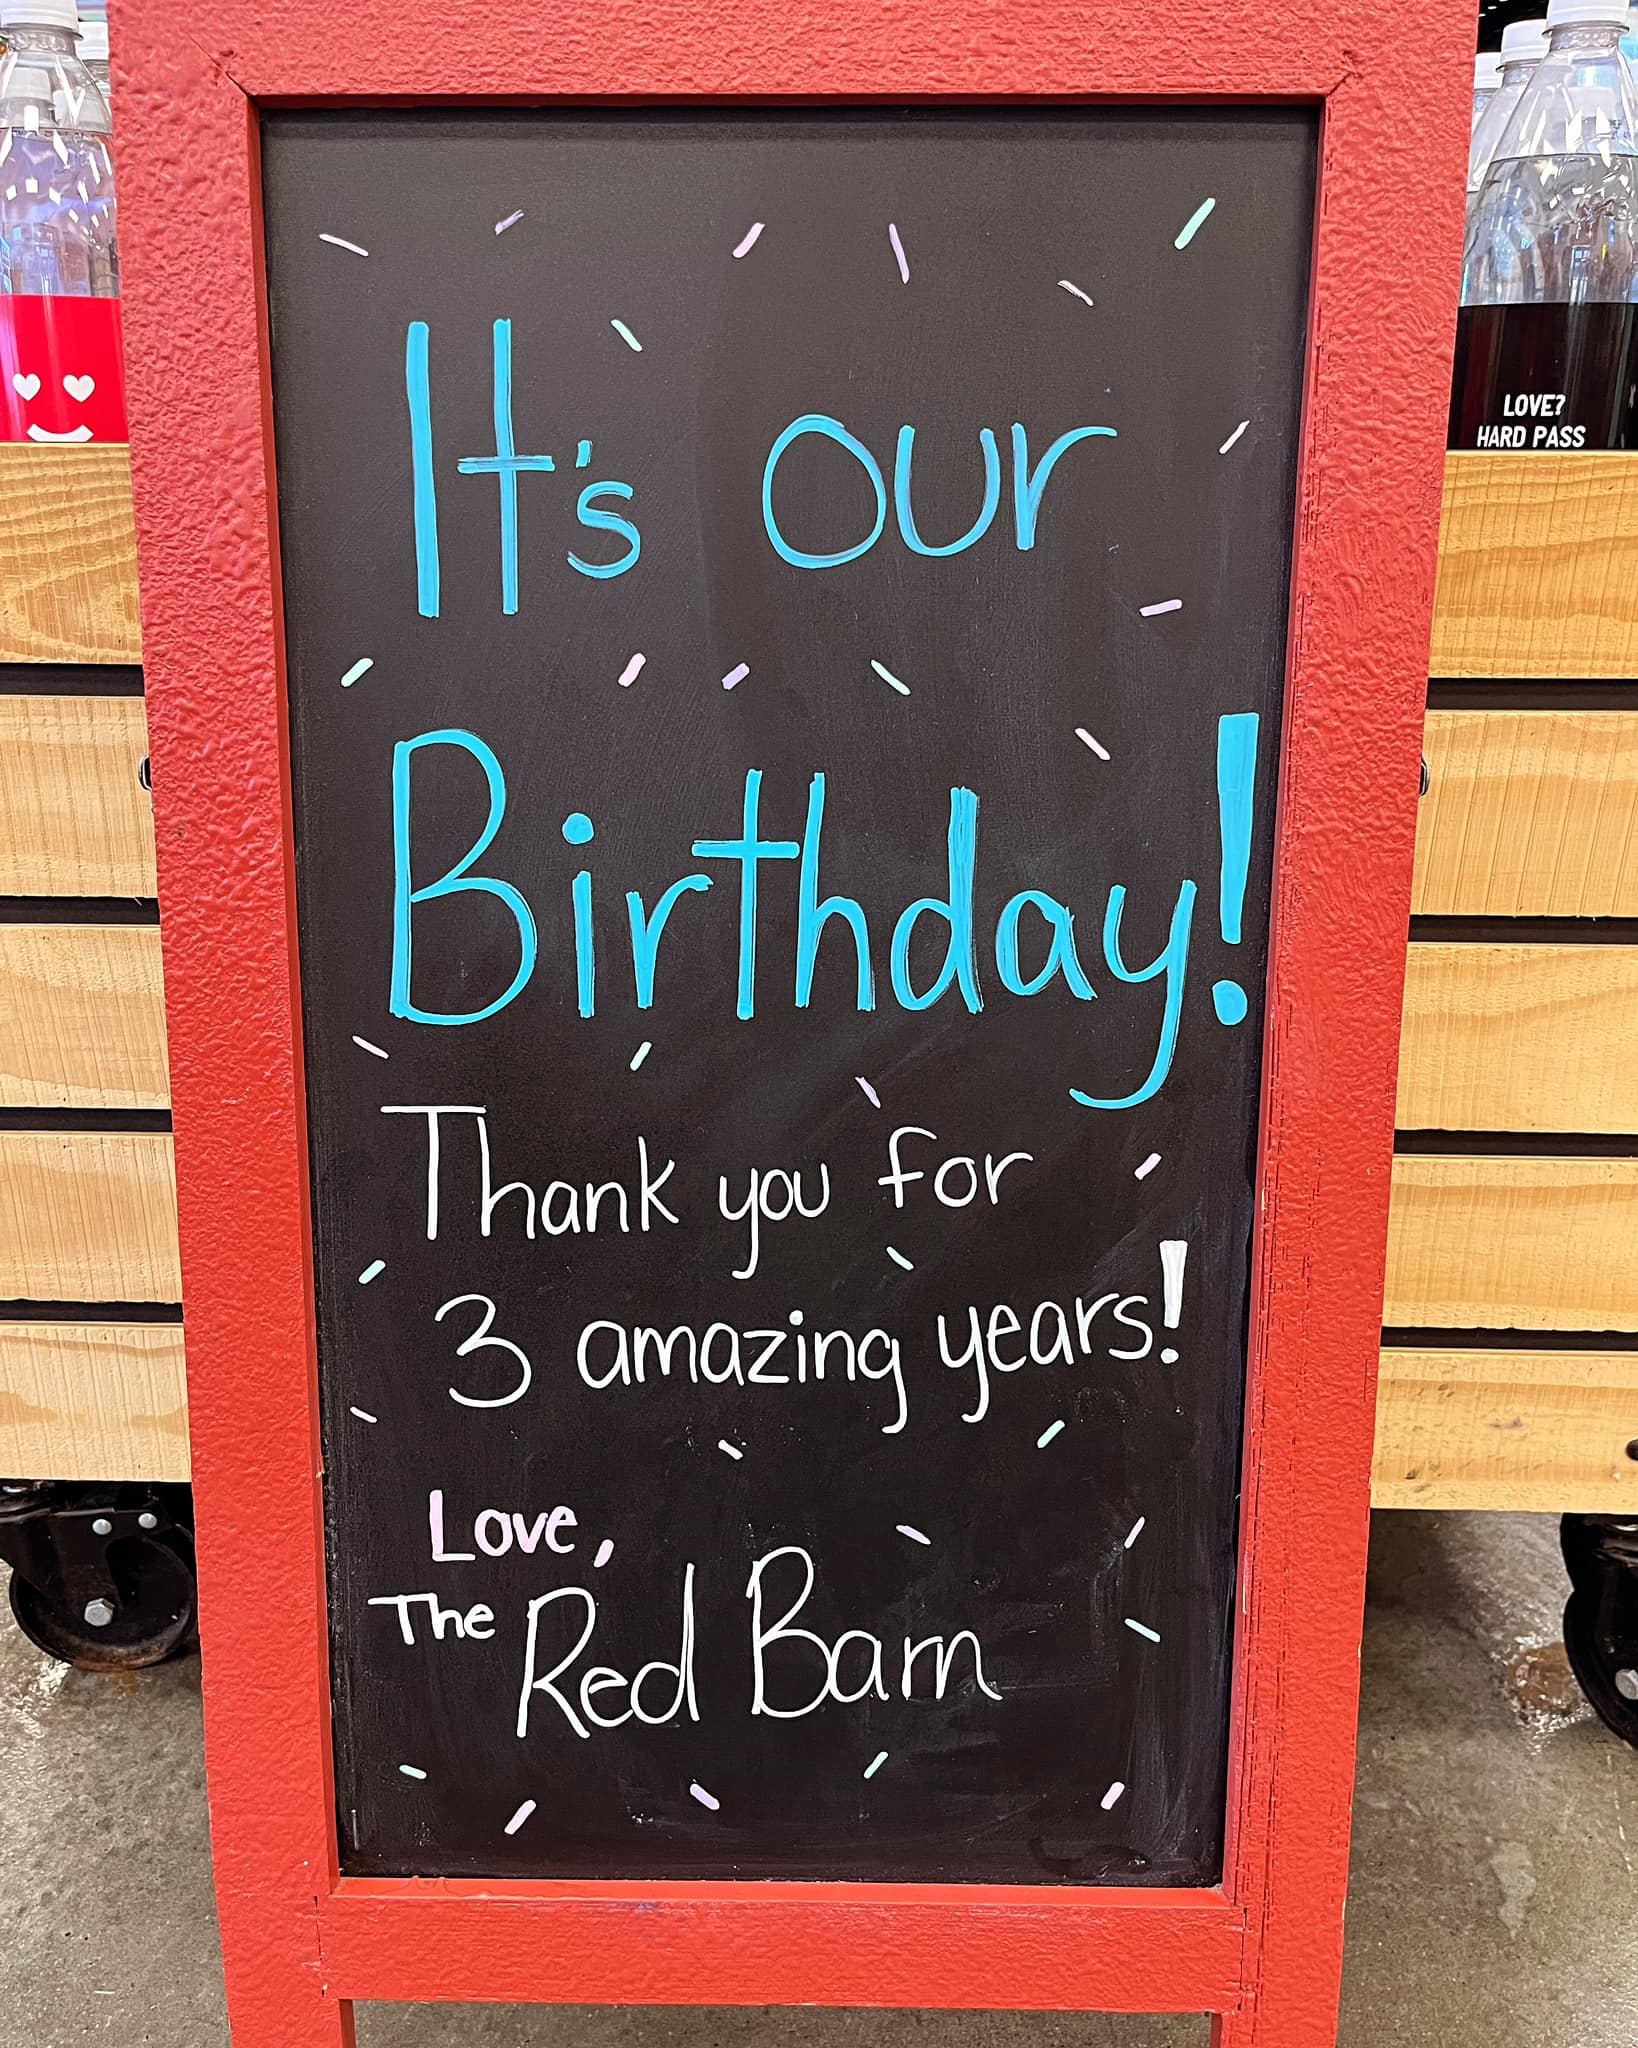 It's our
Birthday!
Thank you for
3 amazing years!
Love,
The Red Barn
LOVE?
HARD PASS